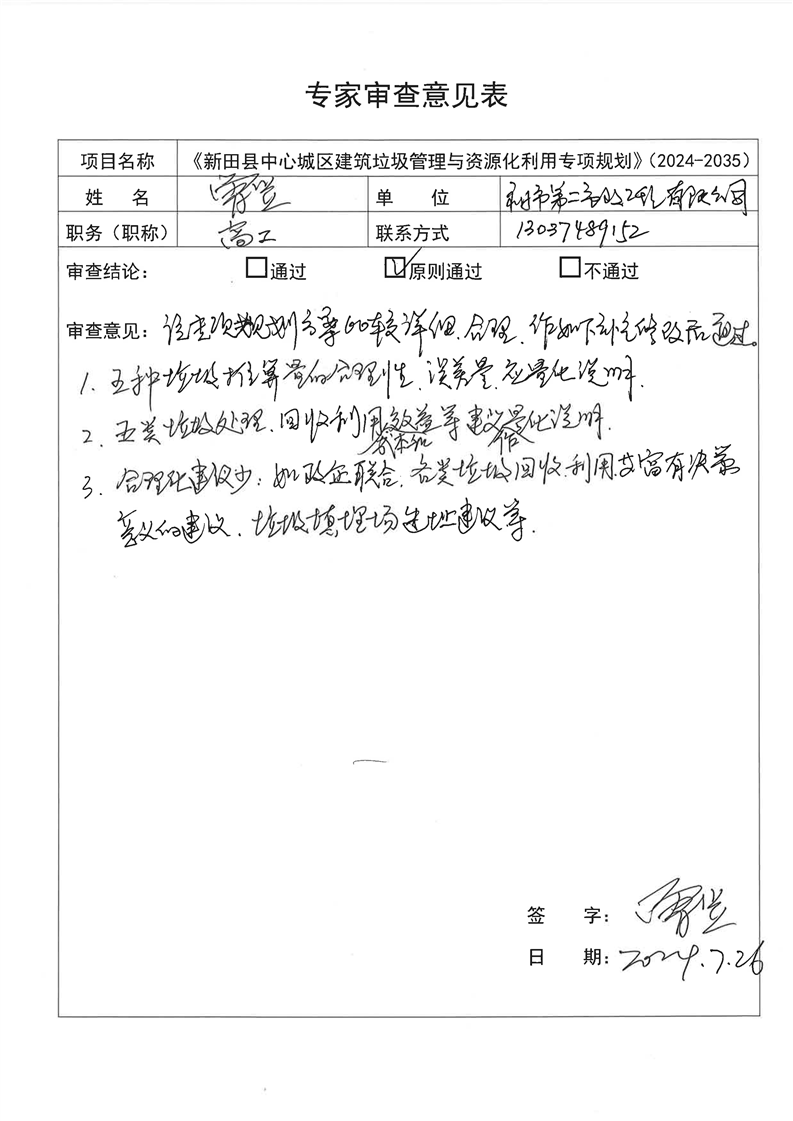 专家审查意见表
项目名称 《新田县中心城区建筑垃圾管理与资源化利用专项规划》(2024-2035)
姓 名 单 位 市第二市政工程有限公司
职务（职称） 高工 联系方式 13037489152
审查结论： 通过 原则通过 不通过
审查意见：该专项规划方案比较详细、合理、作如下补充修改后通过。
1. 五种垃圾推算量的合理性、误差量、应量化说明.
2. 五类垃圾处理、回收利用效益等建议量化说明.
成本和 作
3. 合理化建议少：如政企联合、各类垃圾回收利用含有决策
意义的建议、垃圾填埋场选址建议等.
签 字：
日 期：2024.7.26